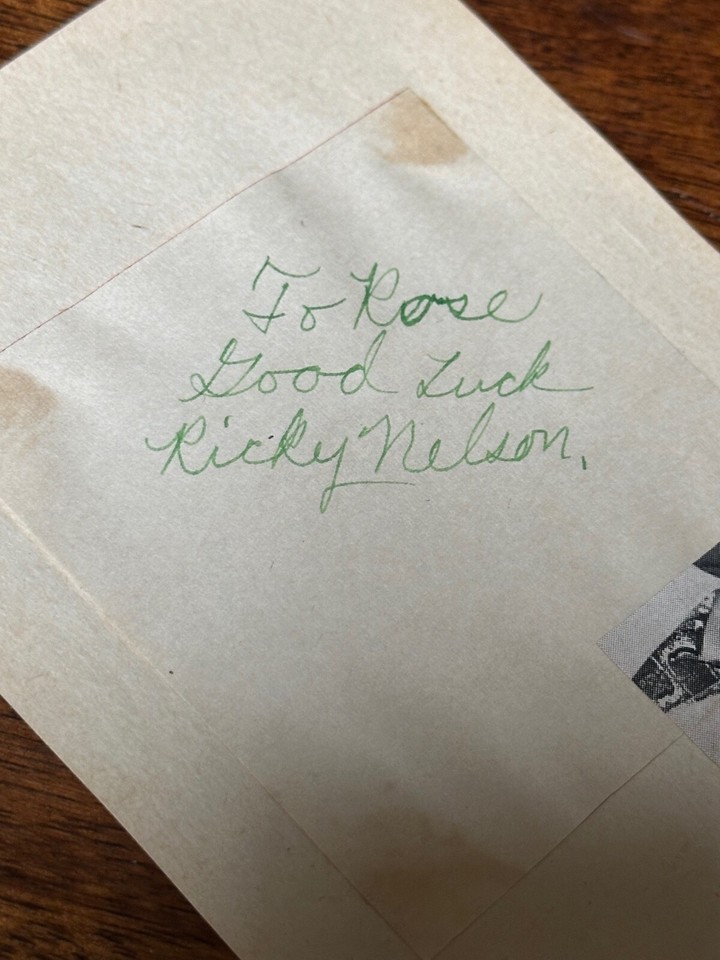 To Rose
Good Luck
Ricky Nelson.